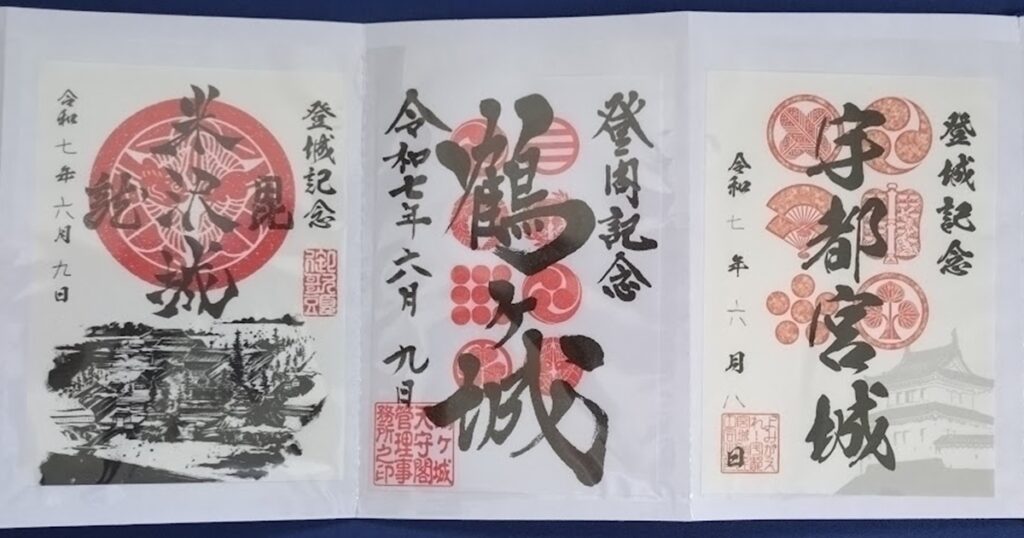 登城記念
米沢城
毘
龍
令和七年六月九日
登閣記念
鶴ヶ城
令和七年六月九日
鶴ヶ城
天守閣
管理事
務所之印
登城記念
宇都宮城
令和七年六月八日